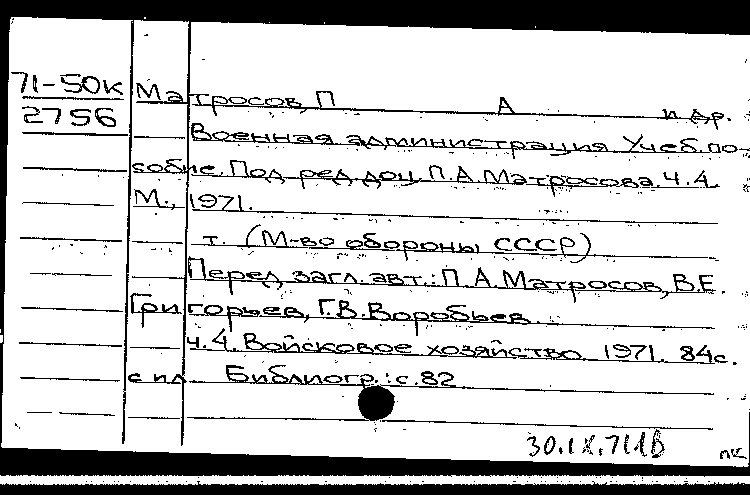 71-50к
2756
Матросов, П А и др.
Военная администрация. Учеб. по-
собие. Под ред. доц. П.А. Матросова. Ч. 4.
М., 1971.
т. (М-во обороны СССР)
Перед загл. авт.: П.А. Матросов, В.Е.
Григорьев, Г.В. Воробьев.
ч. 4. Войсковое хозяйство. 1971. 84с.
с ил. Библиогр.: с. 82
30.IX.71